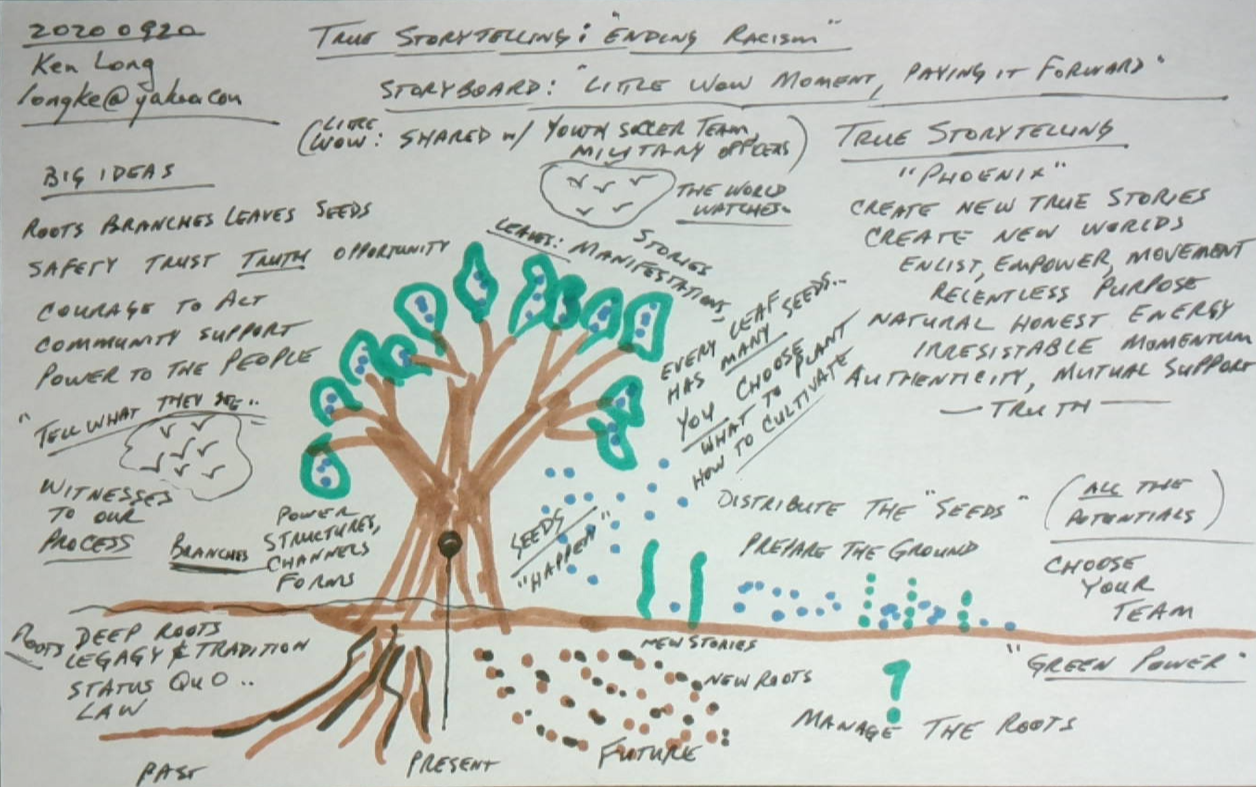 20200920
Ken Long
longke@yahoo.com
TRUE STORYTELLING: "ENDING RACISM"
STORYBOARD: "LITTLE WOW MOMENT, PAYING IT FORWARD"
(LITTLE WOW: SHARED W/ YOUTH SOCCER TEAM,
MILITARY OFFICERS)
THE WORLD
WATCHES
BIG IDEAS
ROOTS BRANCHES LEAVES SEEDS
SAFETY TRUST TRUTH OPPORTUNITY
COURAGE TO ACT
COMMUNITY SUPPORT
POWER TO THE PEOPLE
"TELL WHAT THEY SEE..
WITNESSES
TO OUR
PROCESS
BRANCHES
POWER
STRUCTURES,
CHANNELS
FORMS
LEAVES: MANIFESTATIONS,
STORIES
EVERY LEAF
HAS MANY SEEDS...
YOU CHOOSE
WHAT TO PLANT
HOW TO CULTIVATE
SEEDS
"HAPPEN"
TRUE STORYTELLING
"PHOENIX"
CREATE NEW TRUE STORIES
CREATE NEW WORLDS
ENLIST, EMPOWER, MOVEMENT
RELENTLESS PURPOSE
NATURAL HONEST ENERGY
IRRESISTABLE MOMENTUM
AUTHENTICITY, MUTUAL SUPPORT
— TRUTH —
DISTRIBUTE THE "SEEDS"
(ALL THE
POTENTIALS)
PREPARE THE GROUND
CHOOSE
YOUR
TEAM
ROOTS
DEEP ROOTS
LEGACY & TRADITION
STATUS QUO..
LAW
PAST
PRESENT
FUTURE
NEW STORIES
NEW ROOTS
"GREEN POWER"
?
MANAGE THE ROOTS